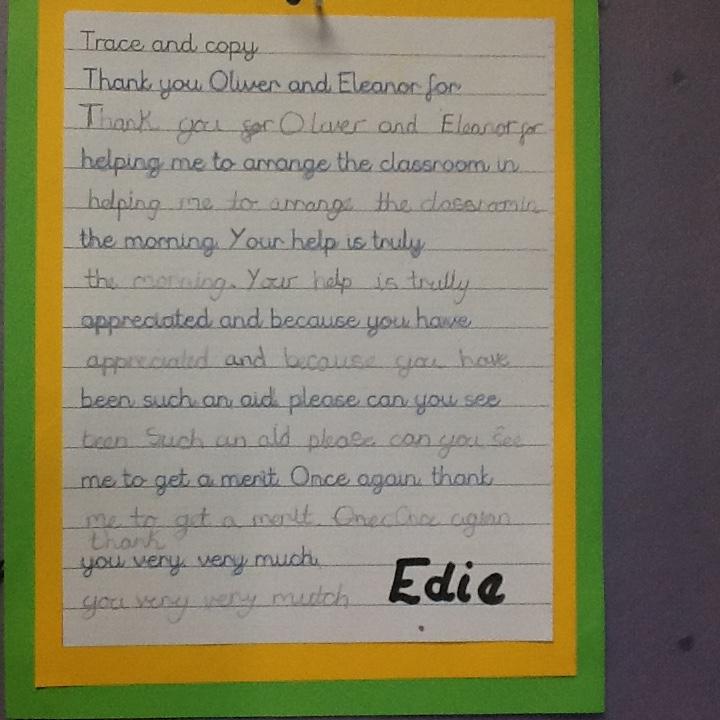 Trace and copy
Thank you Oliver and Eleanor for
Thank you for Oliver and Eleanor for
helping me to arrange the classroom in
helping me to arrange the classroomin
the morning. Your help is truly
the morning. Your help is trully
appreciated and because you have
appreciated and because you have
been such an aid please can you see
been Such an aid please can you see
me to get a merit. Once again thank
me to get a merit. Once Once again
thank
you very very much.
you very very mutch
Edie